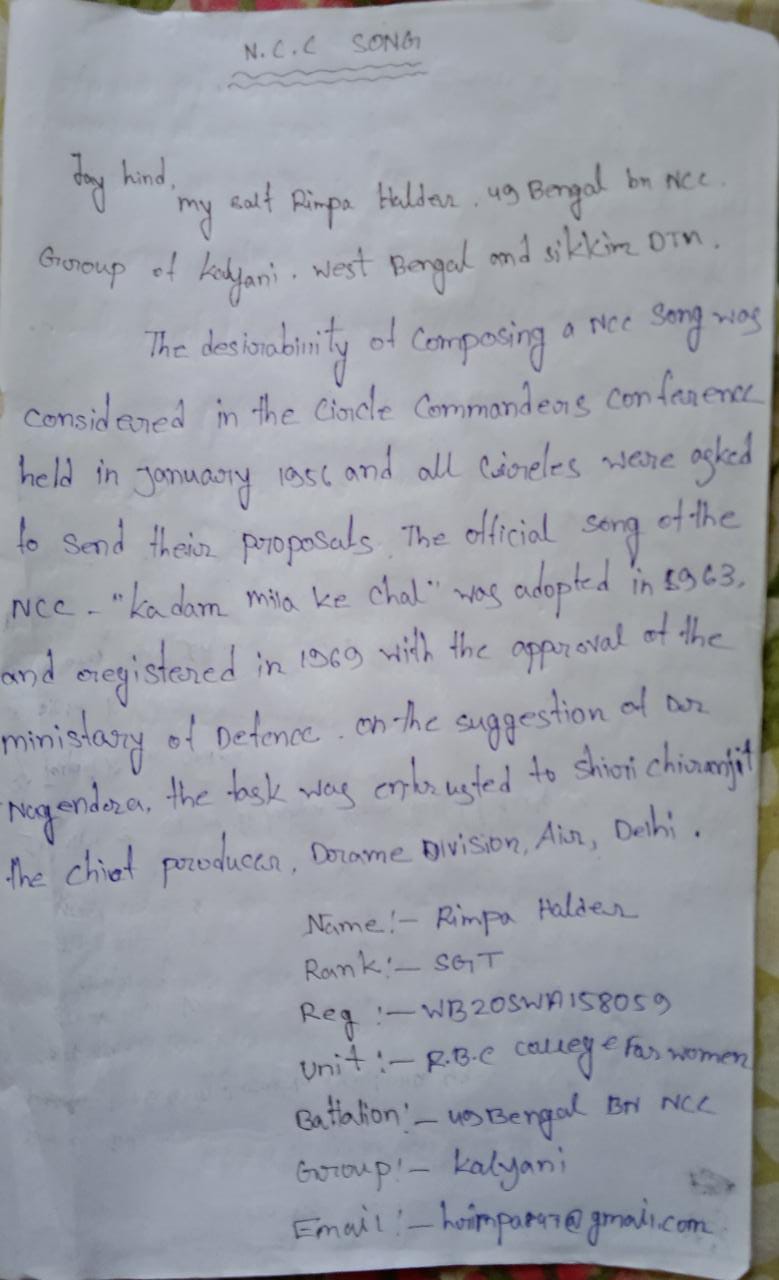 N.C.C SONG
Jay hind,
my salf Rimpa Halder. 49 Bengal bn NCC.
Group of Kalyani. West Bengal and sikkim DTN.
The desirabinity of Composing a NCC Song was
considered in the Circle Commanders conference
held in january 1956 and all Circles were asked
to send their proposals. The official song of the
NCC - "kadam mila ke Chal" was adopted in 1963,
and registered in 1969 with the approval of the
ministary of Defence. on the suggestion of
Nagendera, the task was entrusted to Shiri chiranjit
the chief producer, Drame Division, Air, Delhi.
Name:- Rimpa Halder
Rank:- SGT
Reg :- WB20SWA158059
Unit :- R.B.C college For women
Battalion:- 49 Bengal BN NCC
Group:- Kalyani
Email:- @gmail.com